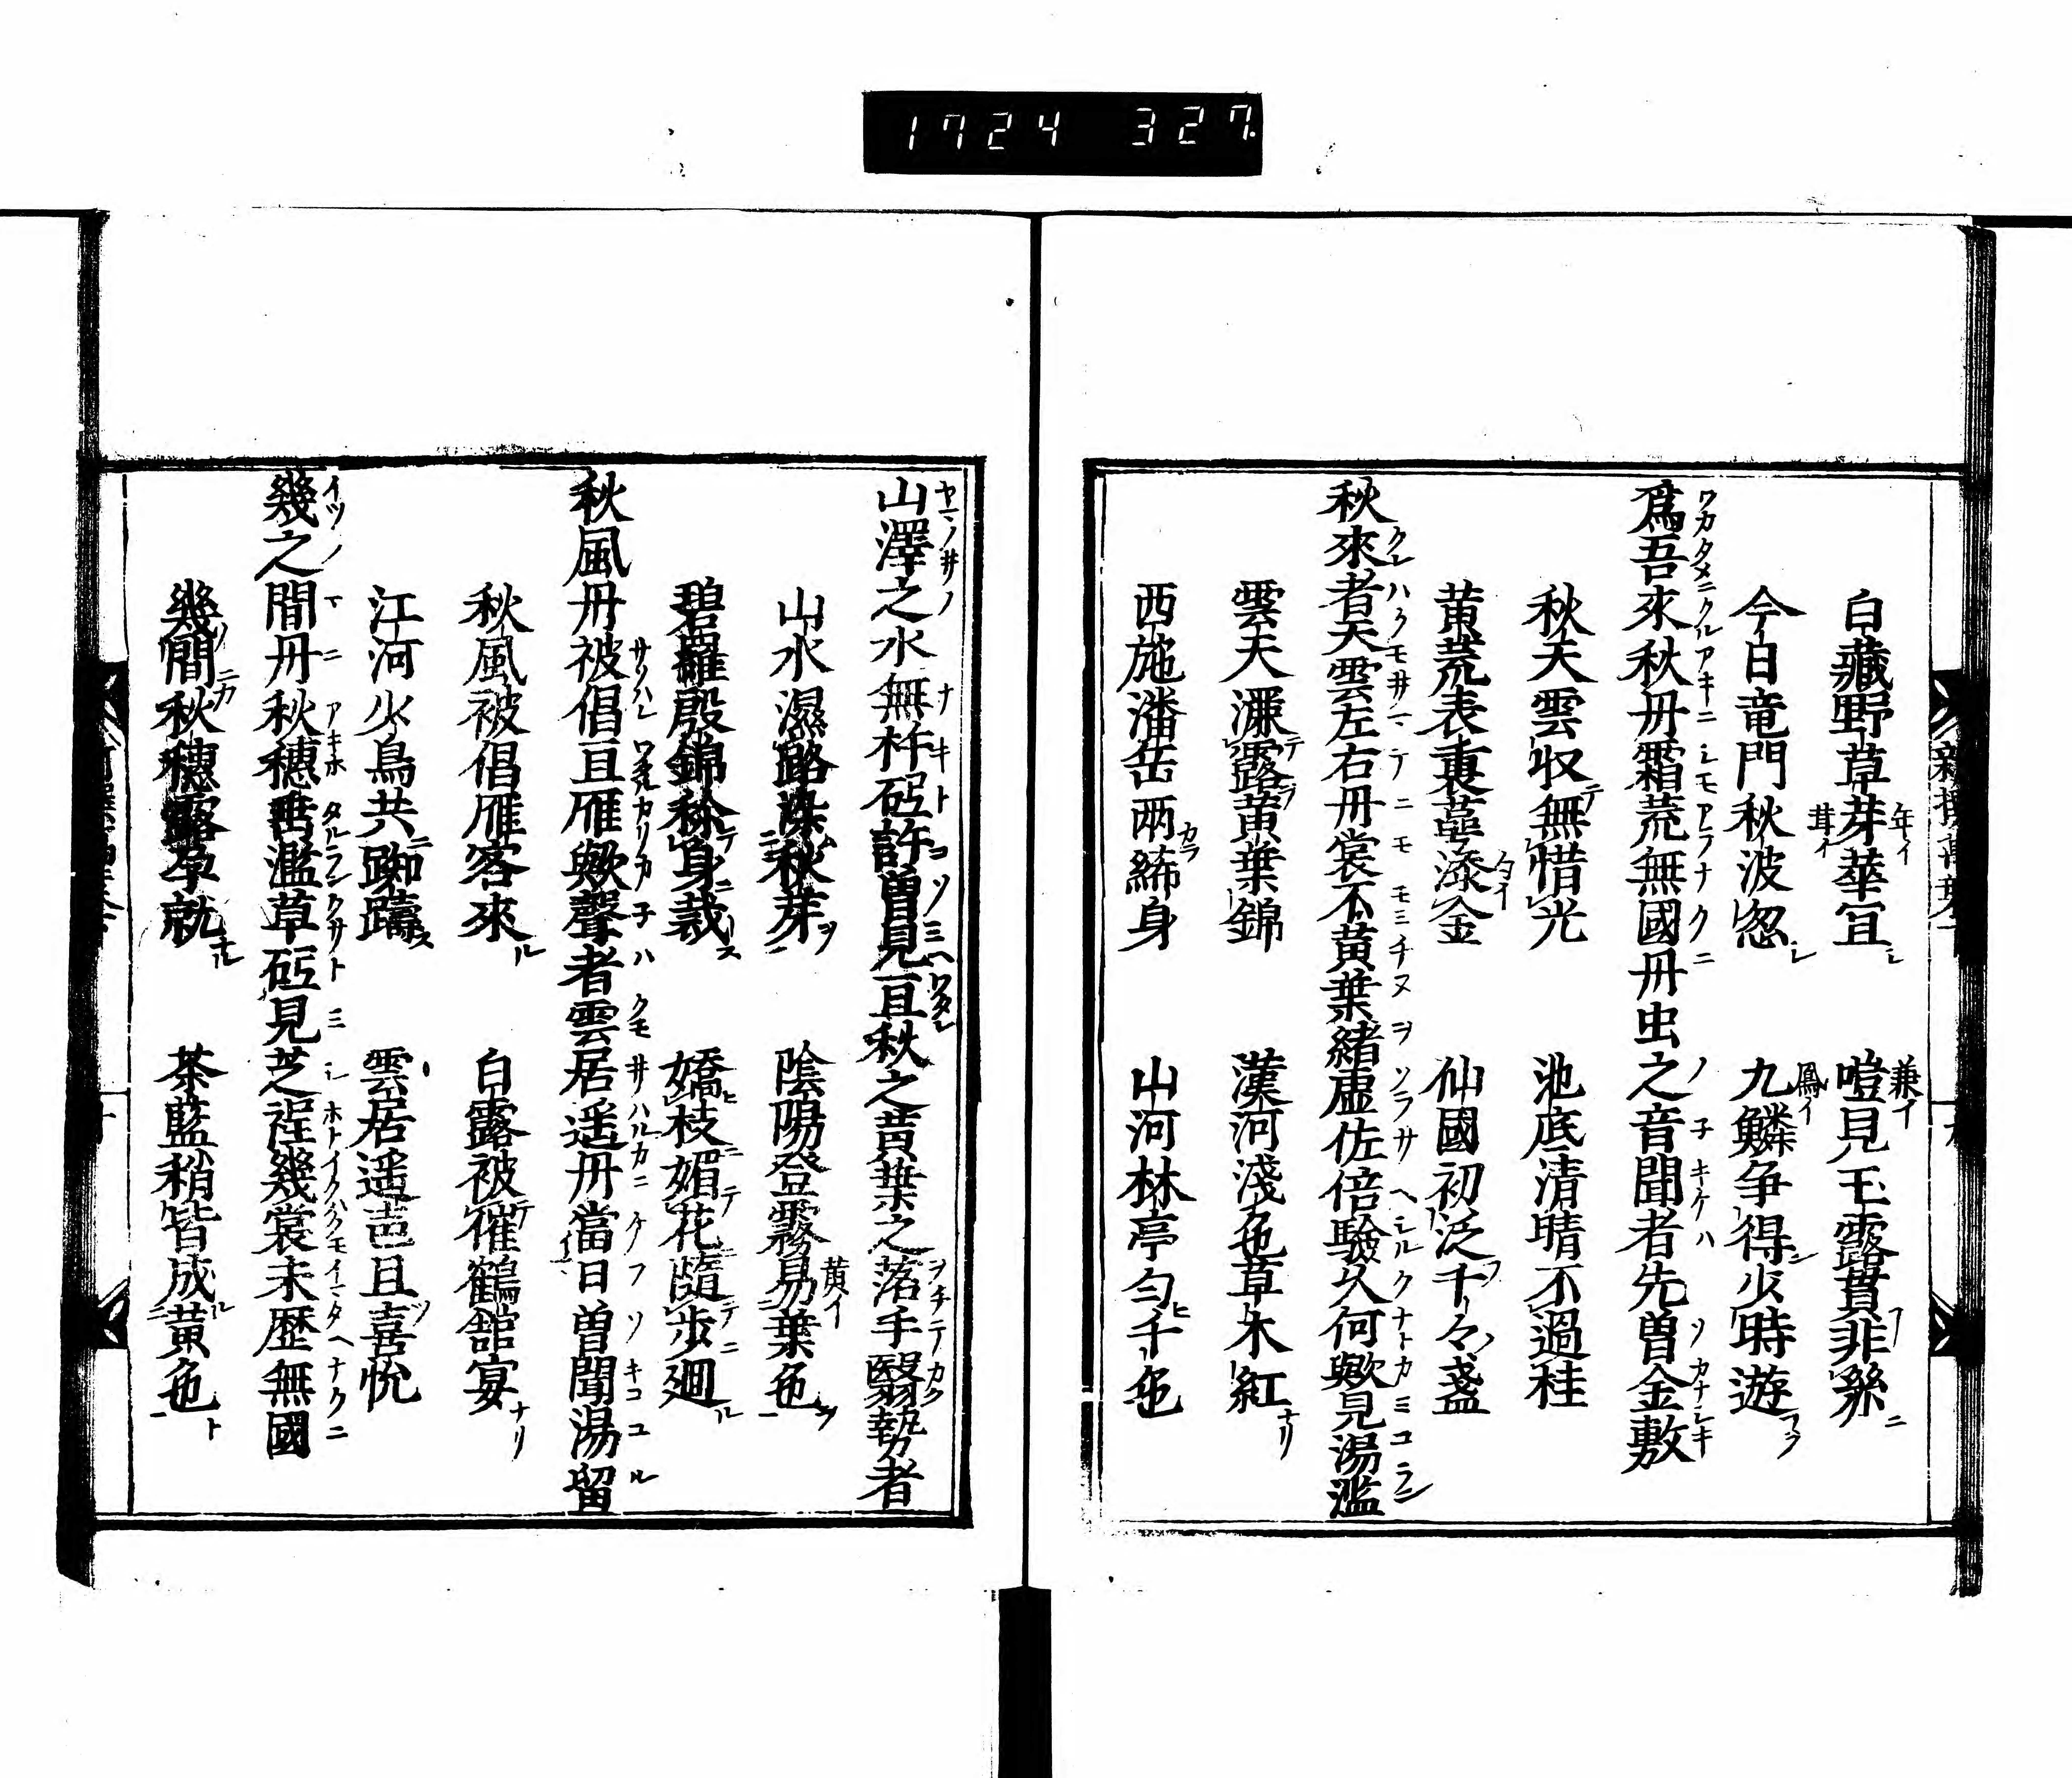 1724 327
白藏野草芽華宜 嘡見玉露貫非絲
今日竜門秋波忽 九鱗争得少時遊
爲吾來秋丹霜荒無國丹虫之音聞者先曽金敷
秋天雲収無惜光 池底清晴不過桂
黄荒表裏菫漆金 仙國初泛千々盞
秋來者天雲左右丹裳不黄葉緒虚佐倍驗久何歟見湯濫
雲天濂露黄葉錦 漢河淺色草木紅
西施潘岳兩絺身 山河林亭匀千色
山澤之水無杵砳許曽見亘秋之黄葉之落手翳勢者
山水濕路染秋芽 陰陽登霧易葉色
碧羅殷錦稌身裁 嬌枝媚花隨步廻
秋風丹被倡亘雁歟聲者雲居遥丹當日曽聞湯留
秋風被倡雁客來 白露被催鶴館宴
江河少鳥共踟躊 雲居遥声且喜悦
幾之間丹秋穗垂濫草砳見芝裎幾裳未歴無國
幾間秋穗露孕就 茶藍稍皆成黄色